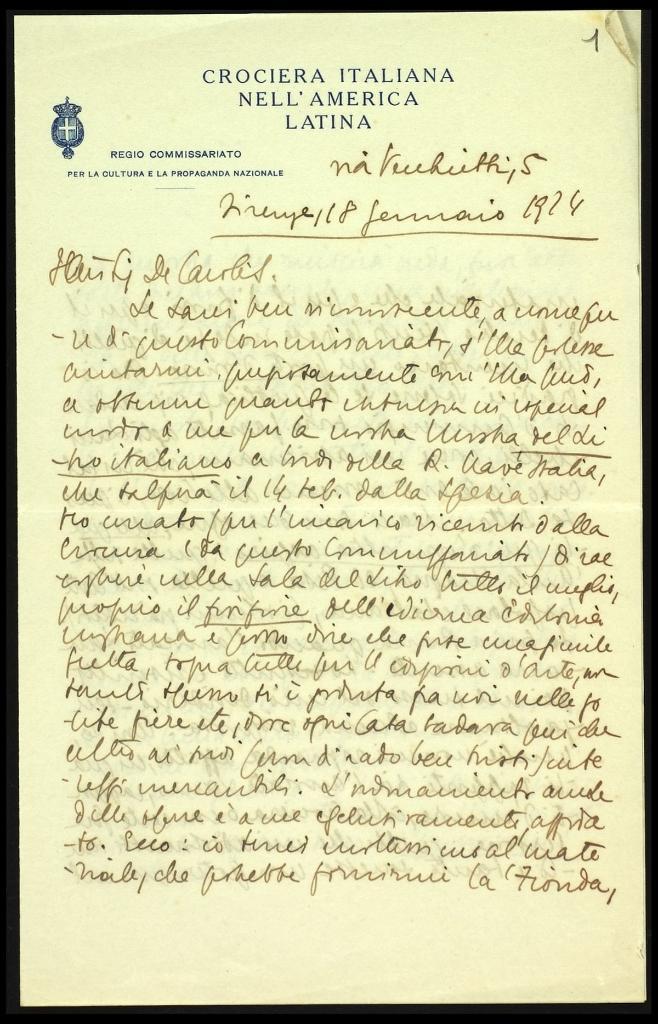 1
CROCIERA ITALIANA
NELL'AMERICA
LATINA
REGIO COMMISSARIATO
PER LA CULTURA E LA PROPAGANDA NAZIONALE
via Vecchietti, 5
Firenze, 18 gennaio 1924
De Carolis.
Le sarei ben riconoscente, a nome pu
-re di questo Commissariato, s'Ella potesse
aiutarmi, com'Ella può,
a ottenere quanto interessa in ispecial
modo a me per la nostra Mostra del Li
-bro italiano a bordo della R. Nave Italia,
che salperà il 14 feb. dalla Spezia.
Ho avuto (per l'incarico ricevuto dalla
Crociera (da questo Commissariato) di rac
-cogliere nella Sala del Libro tutto il meglio,
proprio il fior fiore, dell'odierna Editoria
nostrana e posso dire che forse una simile
scelta, sopra tutto per le edizioni d'arte, non
tanto spesso si è potuta fra noi nelle so
-lite fiere etc, dove ogni Casa badava più che
altro ai suoi (non di rado ben tristi) inte
-ressi mercantili. L'ordinamento anche
delle opere è a me esclusivamente affida
-to. Ecco: io terrei moltissimo al mate
-riale, che potrebbe fornirmi la "Fionda,